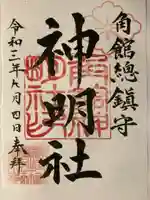 角館總鎮守
神明社
令和三年九月四日奉拝